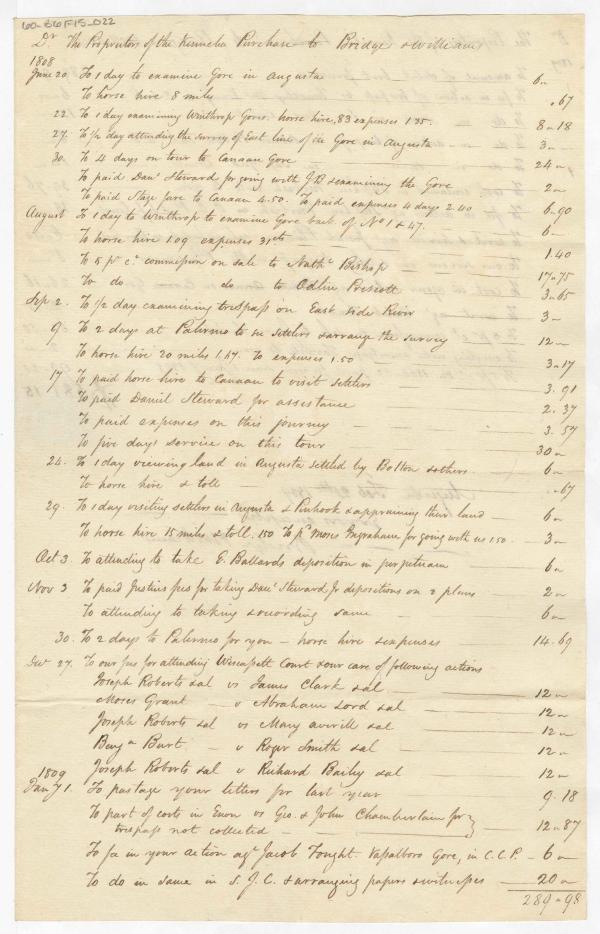 60-S6F15-022
Dr. The Proprietors of the Kennebec Purchase to Bridge & Williams
1808
June 20. To 1 day to examine Gore in Augusta 6 "
To horse hire 8 miles " .67
22. To 1 day examining Winthrop Gores. horse hire, 83 expenses 1.35. 8 " 18
27. To 1/2 day attending the survey of East line of the Gore in Augusta 3 "
30. To 4 days on tour to Canaan Gore 24 "
To paid Danl Steward for going with J B & examining the Gore 2 "
To paid Stage fare to Canaan 4.50. To paid expenses 4 days 2.40 6 " 90
August To 1 day to Winthrop to examine Gore back of No 1 & 47. 6 "
To horse hire 1.09 expenses 31cts 1.40
To 5 pr ct commission on sale to Nathl Bishop 17 " 75
To do do to Odlin Prescott 3 " 65
Sep 2. To 1/2 day examining trespass on East side River 3 "
9. To 2 days at Palermo to see settlers & arrange the survey 12 "
To horse hire 20 miles 1.67. To expenses 1.50 3 " 17
17 To paid horse hire to Canaan to visit settlers 3. 91
To paid Daniel Steward for assistance 2. 37
To paid expenses on this journey 3. 57
To five days service on this tour 30 "
24. To 1 day viewing land in Augusta settled by Bolton & others 6 "
To horse hire & toll " .67
29. To 1 day visiting settlers in Augusta & Pinhook & appraising their land 6 "
To horse hire 15 miles & toll. 150 To pd Moses Ingraham for going with us 1.50 3 "
Oct 3. To attending to take E. Ballards deposition in perpetuam 6 "
Nov 3 To paid Justices fees for taking Danl Steward Jr depositions on 2 plans 2 "
To attending to taking & recording same 6 "
30. To 2 days to Palermo for you - horse hire & expenses 14.69
Decr 27. To our fees for attending Wiscassett Court & our care of following actions
Joseph Roberts &al vs James Clark &al 12 "
Moses Grant v Abraham Lord &al 12 "
Joseph Roberts &al vs Mary Averill &al 12 "
Benjn Burt v Roger Smith &al 12 "
Joseph Roberts &al v Richard Bailey &al 12 "
1809
Jany 1. To postage your letters for last year 9. 18
To part of costs in Exon vs Geo. & John Chamberlain for }
trespass not collected 12 " 87
To fee in your action agt Jacob Fought. Vassalboro Gore, in C.C.P. 6 "
To do in same in S. J. C. & arranging papers & witnesses 20 "
289 " 98